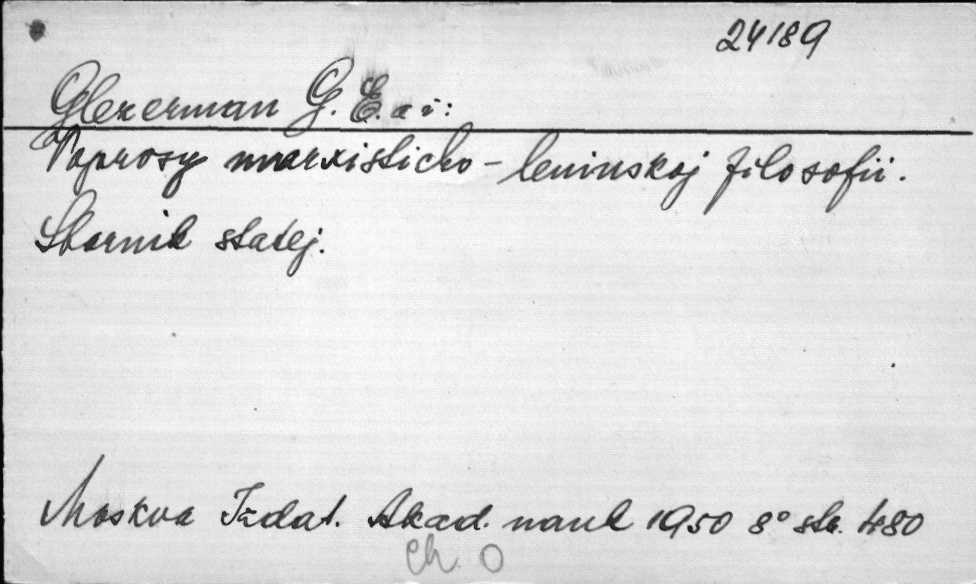 24189
Glezerman G. E. a i:
Voprosy marxisticko-leninskoj filosofii.
Sbornik statej.
Moskva Izdat. Akad. nauk 1950 8° str. 480
Ch. O